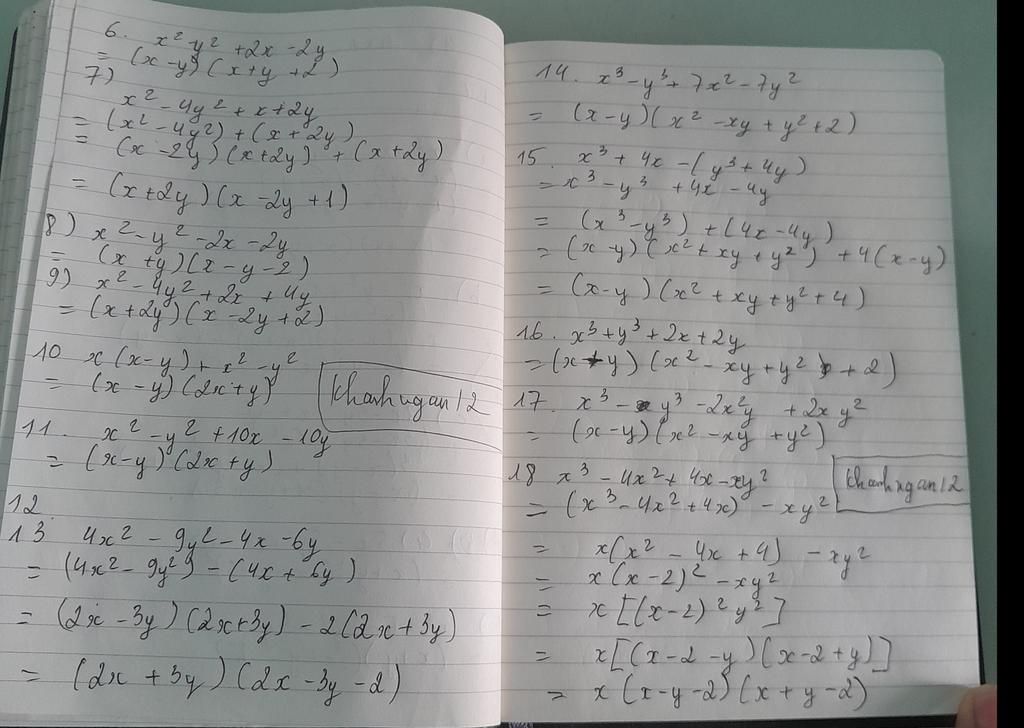 6. x² - y² + 2x - 2y
= (x - y) (x + y + 2)
7)
x² - 4y² + x + 2y
= (x² - 4y²) + (x + 2y)
= (x - 2y) (x + 2y) + (x + 2y)
= (x + 2y) (x - 2y + 1)
8) x² - y² - 2x - 2y
= (x + y) (x - y - 2)
9) x² - 4y² + 2x + 4y
= (x + 2y) (x - 2y + 2)
10 x (x - y) + x² - y²
= (x - y) (2x + y)
khanhngan12
11. x² - y² + 10x - 10y
= (x - y) (2x + y)
12
13 4x² - 9y² - 4x - 6y
= (4x² - 9y²) - (4x + 6y)
= (2x - 3y) (2x + 3y) - 2 (2x + 3y)
= (2x + 3y) (2x - 3y - 2)
14. x³ - y³ + 7x² - 7y²
= (x - y) (x² - xy + y² + 2)
15. x³ + 4x - (y³ + 4y)
= x³ - y³ + 4x - 4y
= (x³ - y³) + (4x - 4y)
= (x - y) (x² + xy + y²) + 4 (x - y)
= (x - y) (x² + xy + y² + 4)
16. x³ + y³ + 2x + 2y
= (x + y) (x² - xy + y² + 2)
17. x³ - y³ - 2x²y + 2xy²
= (x - y) (x² - xy + y²)
18 x³ - 4x² + 4x - xy²
khanhngan12
= (x³ - 4x² + 4x) - xy²
= x(x² - 4x + 4) - xy²
= x (x - 2)² - xy²
= x [(x - 2)² y²]
= x [(x - 2 - y) (x - 2 + y)]
= x (x - y - 2) (x + y - 2)